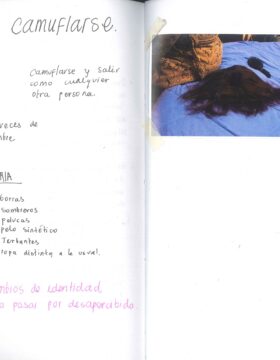 CAMUFLARSE.
Camuflarse y salir
como cualquier
otra persona.
veces de
gorras
sombreros
pelucas
pelo sintético
Ropa distinta a la usual.
mbios de identidad
o pasar por desapercibido.